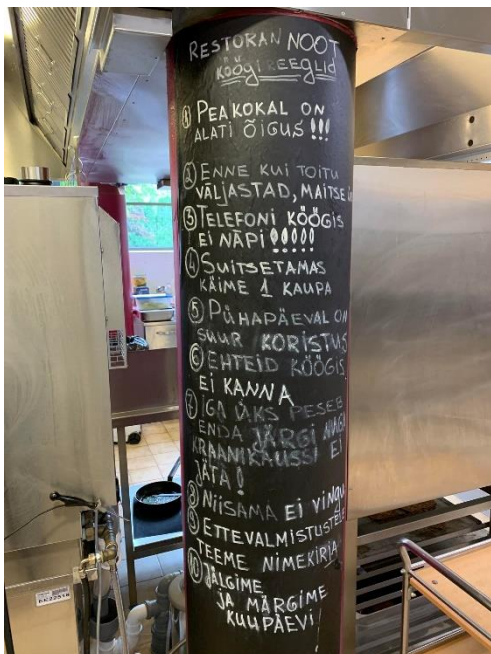 RESTORAN NOOT
KÖÖGIREEGLID
① PEAKOKAL ON
ALATI ÕIGUS !!!
② ENNE KUI TOITU
VÄLJASTAD, MAITSE
③ TELEFONI KÖÖGIS
EI NÄPI !!!!!
④ SUITSETAMAS
KÄIME 1 KAUPA
⑤ PÜHAPÄEVAL ON
SUUR KORISTUS
⑥ EHTEID KÖÖGIS
EI KANNA
⑦ IGA ÜKS PESEB
ENDA JÄRGI
KRAANIKAUSSI EI
JÄTA !
⑧ NIISAMA EI VINGU
⑨ ETTEVALMISTUSTELE
TEEME NIMEKIRJA
⑩ JÄLGIME
JA MÄRGIME
KUUPÄEVI